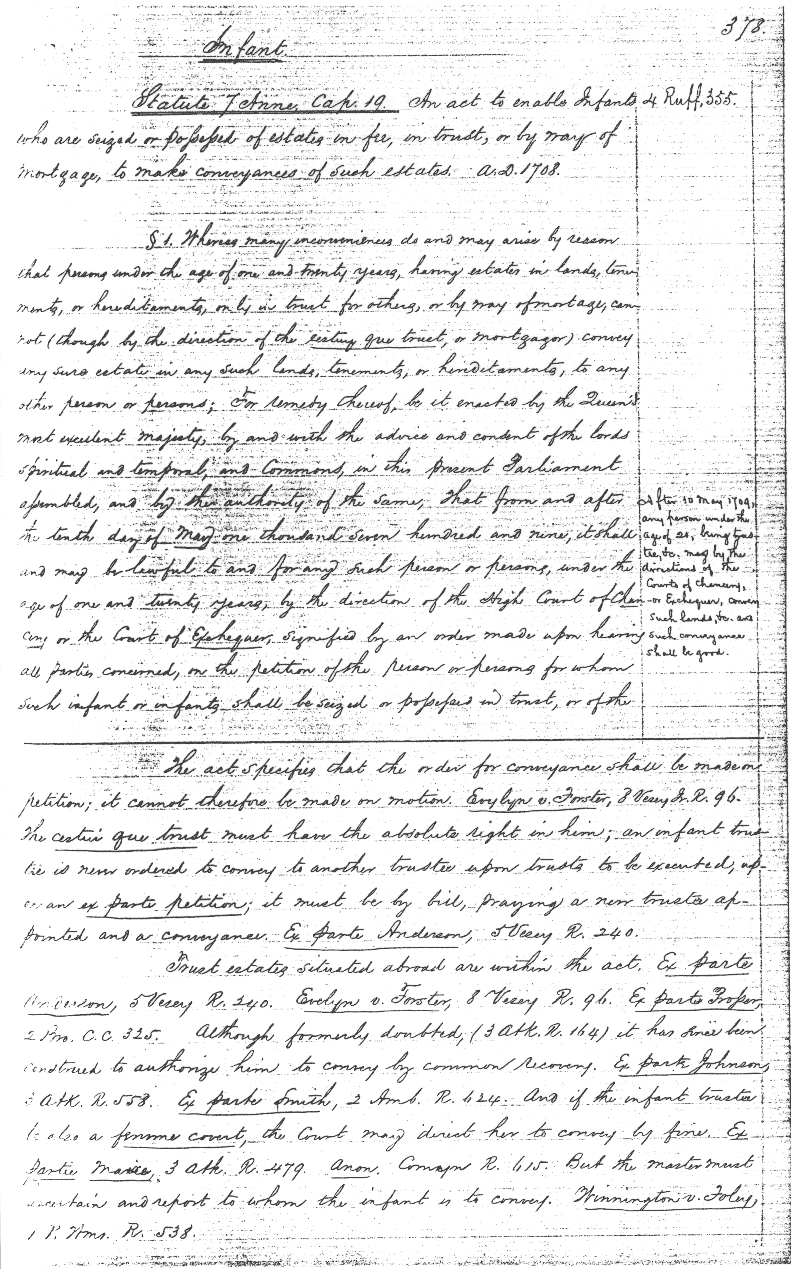 378.
Infant.
Statute 7 Anne, Cap. 19. An act to enable Infants
4 Ruff, 355.
who are seized or possessed of estates in fee, in trust, or by way of
mortgage, to make conveyances of such estates. A.D. 1708.
§ 1. Whereas many inconveniences do and may arise by reason
that persons under the age of one and twenty years, having estates in lands, tene-
ments, or hereditaments, only in trust for others, or by way of mortage, can-
not (though by the direction of the cestiuy que trust, or mortgagor) convey
any sure estate in any such lands, tenements, or hereditaments, to any
other person or persons; For remedy thereof, be it enacted by the Queen's
most excellent majesty, by and with the advice and consent of the lords
spiritual and temporal, and Commons, in this present Parliament
assembled, and by the authority of the same, That from and after
the tenth day of May one thousand seven hundred and nine, it shall
and may be lawful to and for any such person or persons, under the
age of one and twenty years, by the direction of the High Court of Chan-
cery or the Court of Exchequer, signified by an order made upon hearing
all parties concerned, on the petition of the person or persons for whom
such infant or infants shall be seized or possessed in trust, or of the
After 10 May 1709,
any person under the
age of 21, being trus-
tee, &c. may by the
directions of the
Courts of Chancery,
or Exchequer, convey
such lands, &c. and
such conveyance
shall be good.
The act specifies that the order for conveyance shall be made on
petition; it cannot therefore be made on motion. Evylyn v. Forster, 8 Vesey Jr. R. 96.
The cestui que trust must have the absolute right in him; an infant trus-
tee is never ordered to convey to another trustee upon trusts to be executed, up-
on an ex parte petition; it must be by bill, praying a new trustee ap-
pointed and a conveyance. Ex Parte Anderson, 5 Vesey R. 240.
Trust estates situated abroad are within the act. Ex parte
Anderson, 5 Vesey R. 240. Evelyn v. Forster, 8 Vesey R. 96. Ex parte Prosser,
2 Bro. C.C. 325. Although formerly doubted, (3 Atk. R. 164) it has since been
construed to authorize him to convey by common recovery. Ex parte Johnson,
3 Atk. R. 558. Ex parte Smith, 2 Amb. R. 624. And if the infant trustee
be also a femme covert, the Court may direct her to convey by fine. Ex
Partie Maire, 3 Atk. R. 479. Anon. Comyn R. 615. But the master must
ascertain and report to whom the infant is to convey. Winnington v. Foley,
1 P. Wms. R. 538.